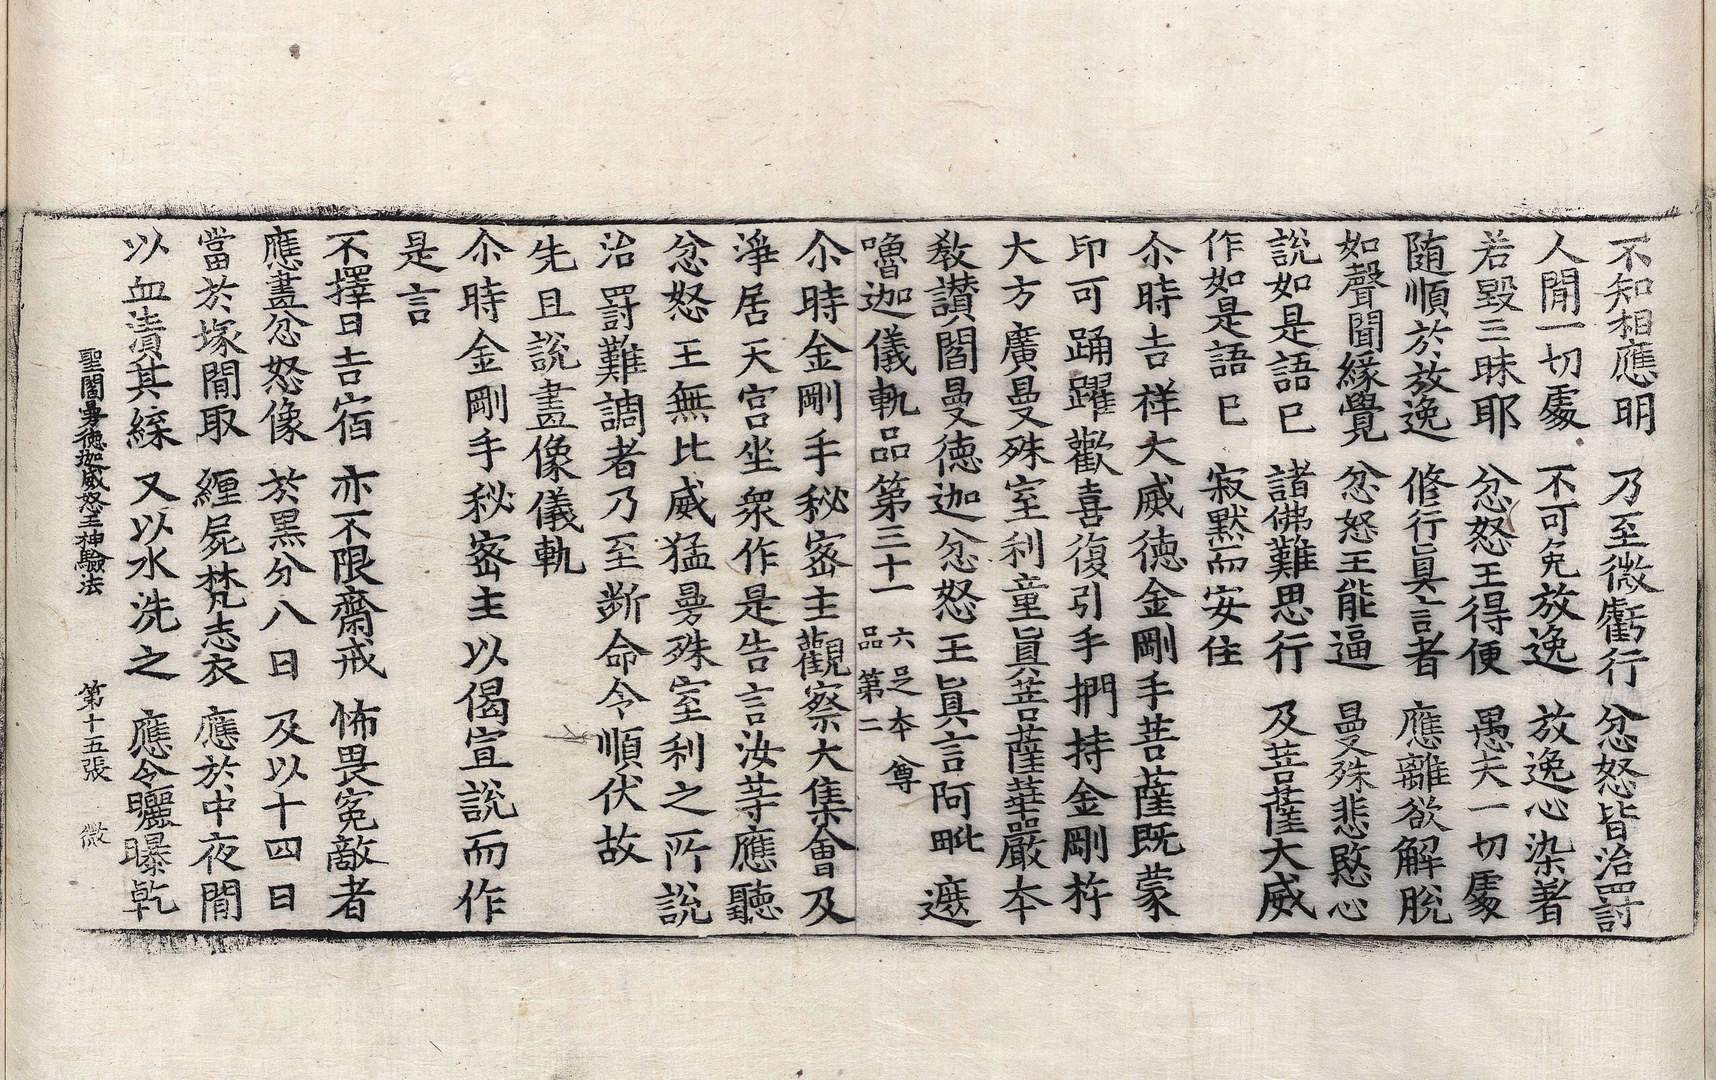 不知相應明　乃至微虧行　忿怒皆治罰
人閒一切處　不可免放逸　放逸心染著
若毀三昧耶　忿怒王得便　愚夫一切處
随順於放逸　修行眞言者　應離欲解脫
如聲聞緣覺　忿怒王能逼　曼殊悲愍心
說如是語已　諸佛難思行　及菩薩大威
作如是語已　寂默而安住
尒時吉祥大威德金剛手菩薩既蒙
印可踊躍歡喜復引手捫持金剛杵
大方廣曼殊室利童眞菩薩華嚴本
教讃閻曼徳迦忿怒王眞言阿毗遮
嚕迦儀軌品第三十一 六足本尊品第二
尒時金剛手秘密主觀察大集會及
淨居天宮坐衆作是告言汝等應聽
忿怒王無比威猛曼殊室利之所說
治罰難調者乃至斷命令順伏故
先且說畫像儀軌
尒時金剛手秘密主以偈宣說而作
是言
不擇日吉宿　亦不限齋戒　怖畏寃敵者
應畫忿怒像　於黑分八日　及以十四日
當於塚閒取　纏屍梵志衣　應於中夜閒
以血漬其綵　又以水洗之　應令曬曝乾
聖閻曼德迦威怒王神驗法　第十五張　微